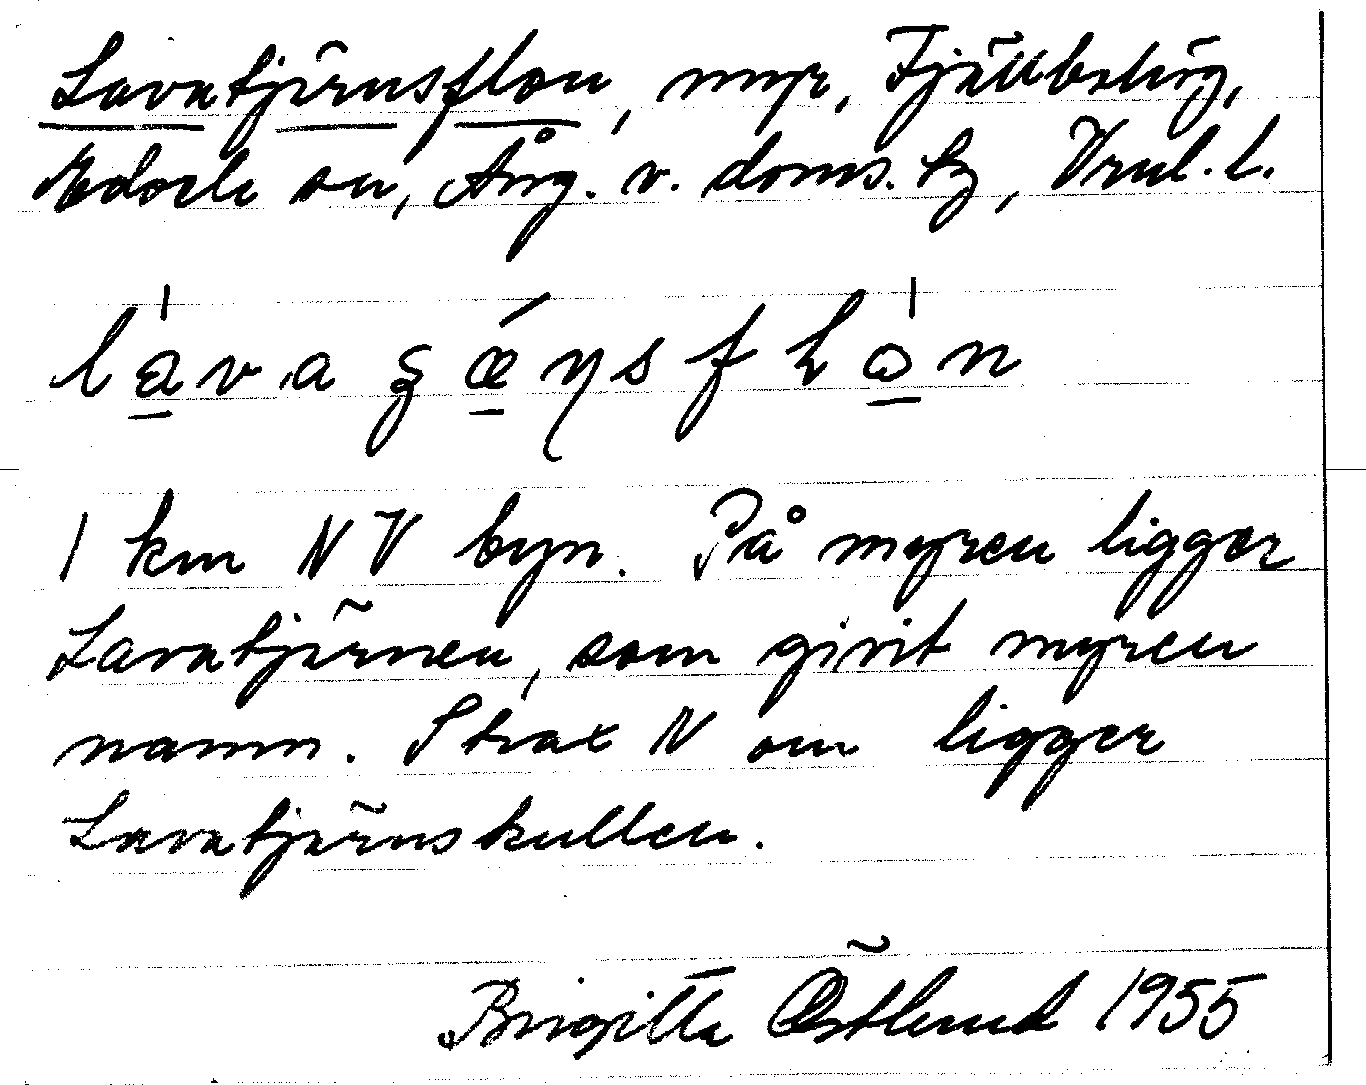 Lavatjärnsflon, myr, Fjällbohög,
Ådals sn, Ång. v. doms. tg, Vrnl. l.
1 km NV byn. På myren ligger
Lavatjärnen, som givit myren
namn. Strax N om ligger
Lavatjärnskullen.
Brigitta Östlund 1955